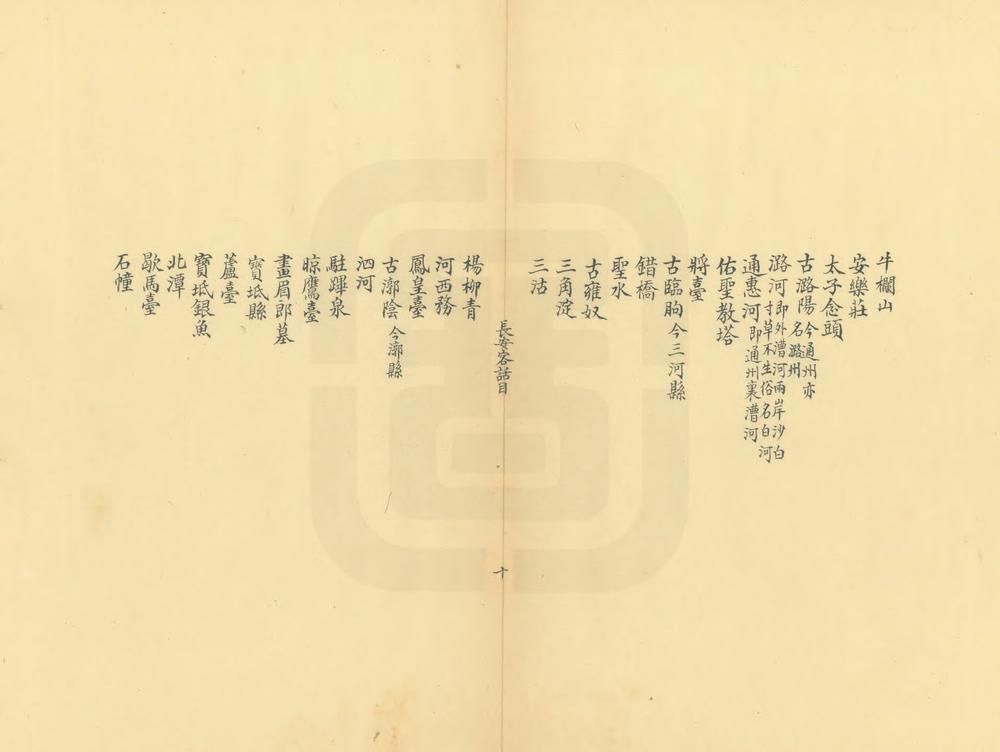 牛欄山
安樂莊
太子念頭
古潞陽 今通州亦名潞州
潞河 即外漕河兩岸沙白寸草不生俗名白河
通惠河 即通州裏漕河
佑聖教塔
將臺
古臨朐 今三河縣
錯橋
聖水
古雍奴
三角淀
三沽
長安客話目
十
楊柳青
河西務
鳳皇臺
古漷陰 今漷縣
泗河
駐蹕泉
晾鷹臺
畫眉郎墓
寶坻縣
蘆臺
寶坻銀魚
北潭
歇馬臺
石幢